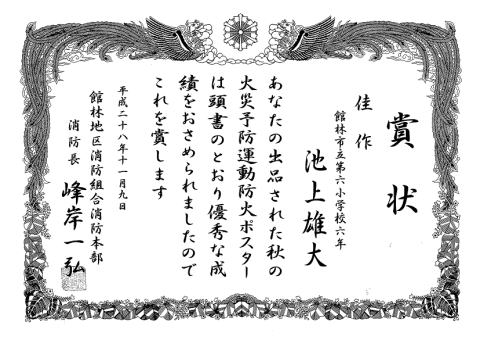 賞状
佳作
館林市立第六小学校六年
池上雄大
あなたの出品された秋の
火災予防運動防火ポスター
は頭書のとおり優秀な成
績をおさめられましたので
これを賞します
平成二十八年十一月九日
館林地区消防組合消防本部
消防長 峰岸一弘